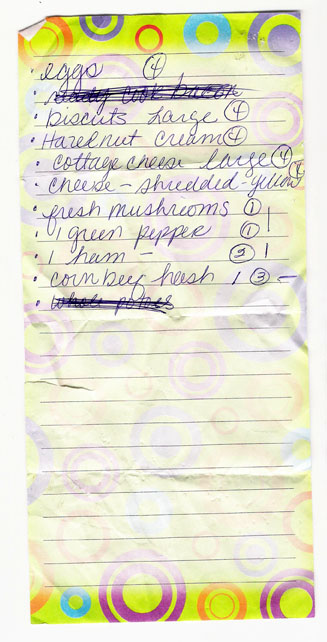 • eggs ④
• ready cook bacon
• Biscuits Large ④
• Hazelnut Cream ④
• cottage cheese large ④
• cheese - shredded - yellow ④
• fresh mushrooms ①
• 1 green pepper ① |
• 1 ham - ⑤ |
• corn beef hash 1 ③ -
• whole